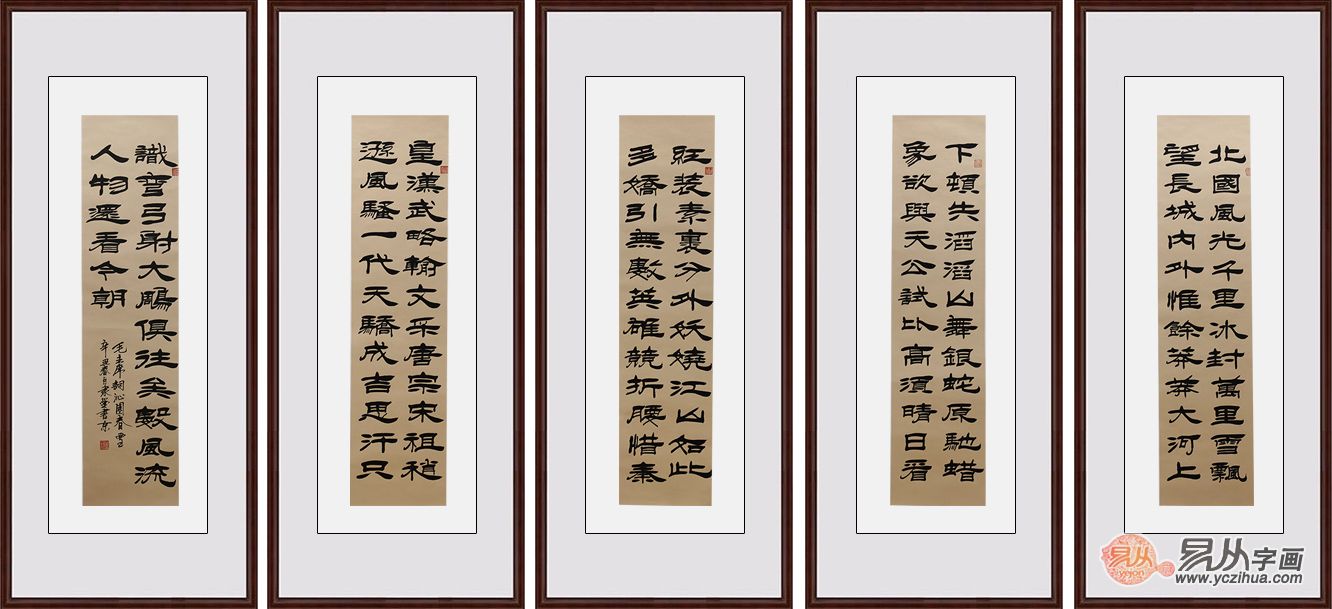 北國風光千里冰封萬里雪飄
望長城内外惟餘莽莽大河上
下頓失滔滔山舞銀蛇原馳蜡
象欲與天公試比高須晴日看
紅装素裹分外妖嬈江山如此
多嬌引無數英雄競折腰惜秦
皇漢武略輸文采唐宗宋祖稍
遜風騷一代天驕成吉思汗只
識彎弓射大鵰俱往矣數風流
人物還看今朝
毛主席詞沁園春雪
辛丑春
易从字画
www.yczihua.com
易从
yicon